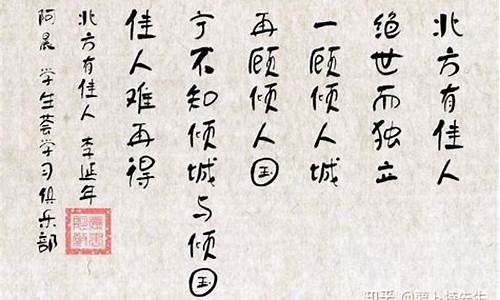 北方有佳人
绝世而独立
一顾倾人城
再顾倾人国
宁不知倾城与倾国
佳人难再得
北方有佳人 李延年
阿晨 学生荟学习俱乐部
知乎 @萝卜特先生